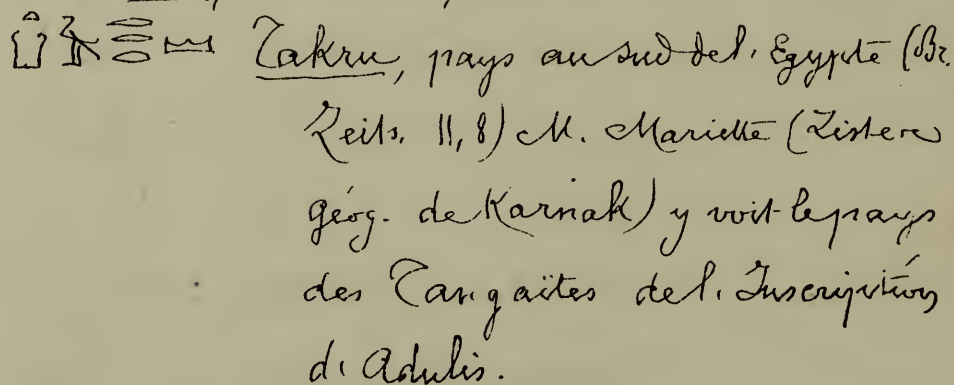 Takru, pays au sud de l'Egypte (Br.
Zeits. 11, 8) M. Mariette (Listes
géog. de Karnak) y voit le pays
des Tangaïtes de l'Inscription
d'Adulis.